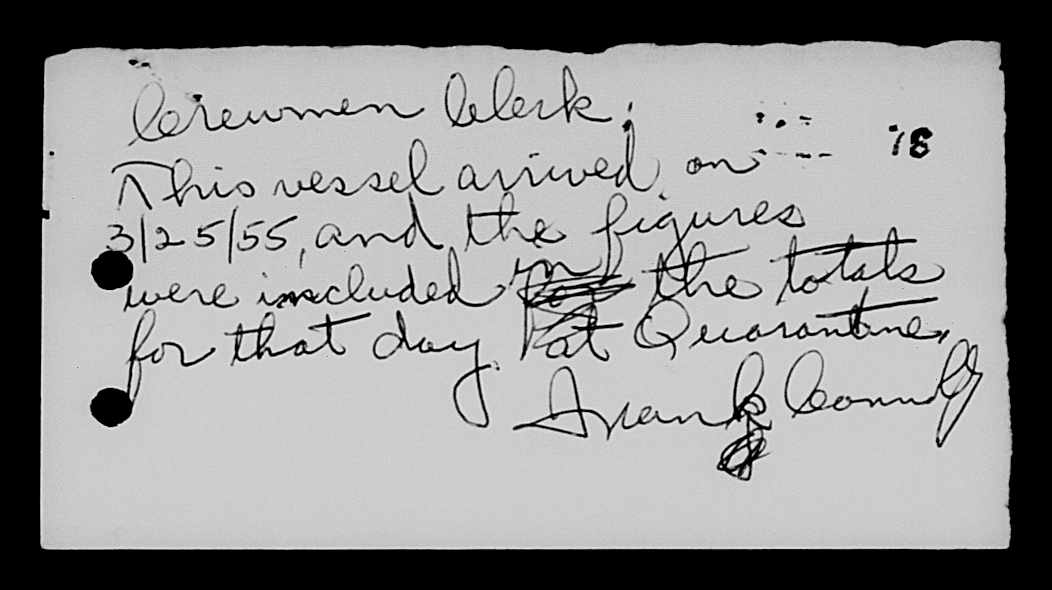 Crewmen Clerk:
78
This vessel arrived on
3/25/55, and the figures
were included in the totals
for that day at Quarantine.
Frank Connolly